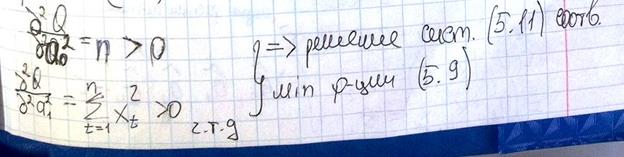 ∂²Q/∂²a₀² = n > 0
∂²Q/∂²a₁² = ∑ₜ₌₁ⁿ xₜ² > 0
} => решение сист. (5.11) соотв.
min ф-ции (5.9)
ч.т.д